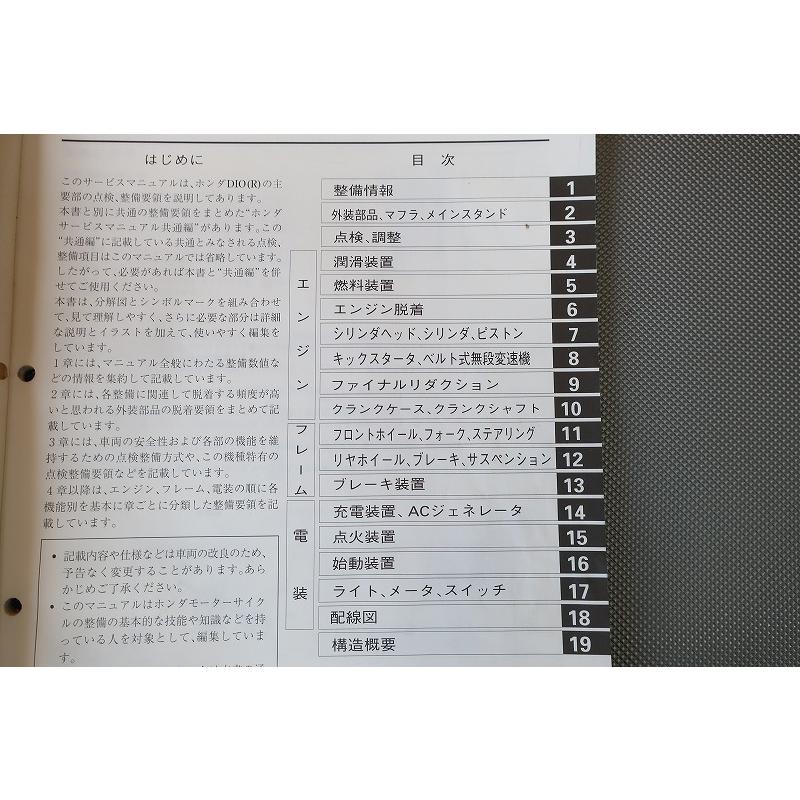 はじめに
このサービスマニュアルは、ホンダDIO(R)の主
要部の点検、整備要領を説明してあります。
本書と別に共通の整備要領をまとめた“ホンダ
サービスマニュアル共通編”があります。この
“共通編”に記載している共通とみなされる点検、
整備項目はこのマニュアルでは省略しています。
したがって、必要があれば本書と“共通編”を併
せてご使用ください。
本書は、分解図とシンボルマークを組み合わせ
て、見て理解しやすく、さらに必要な部分は詳細
な説明とイラストを加えて、使いやすく編集を
しています。
1章には、マニュアル全般にわたる整備数値な
どの情報を集約して記載しています。
2章には、各整備に関連して脱着する頻度が高
いと思われる外装部品の脱着要領をまとめて記
載しています。
3章には、車両の安全性および各部の機能を維
持するための点検整備方式や、この機種特有の
点検整備要領などを記載しています。
4章以降は、エンジン、フレーム、電装の順に各
機能別を基本に章ごとに分類した整備要領を記
載しています。
• 記載内容や仕様などは車両の改良のため、
予告なく変更することがあります。あら
かじめご了承ください。
• このマニュアルはホンダモーターサイク
ルの整備の基本的な技能や知識などを持
っている人を対象として、編集していま
す。
目次
整備情報 1
外装部品、マフラ、メインスタンド 2
点検、調整 3
エンジン
潤滑装置 4
燃料装置 5
エンジン脱着 6
シリンダヘッド、シリンダ、ピストン 7
キックスタータ、ベルト式無段変速機 8
ファイナルリダクション 9
クランクケース、クランクシャフト 10
フレーム
フロントホイール、フォーク、ステアリング 11
リヤホイール、ブレーキ、サスペンション 12
ブレーキ装置 13
電装
充電装置、ACジェネレータ 14
点火装置 15
始動装置 16
ライト、メータ、スイッチ 17
配線図 18
構造概要 19